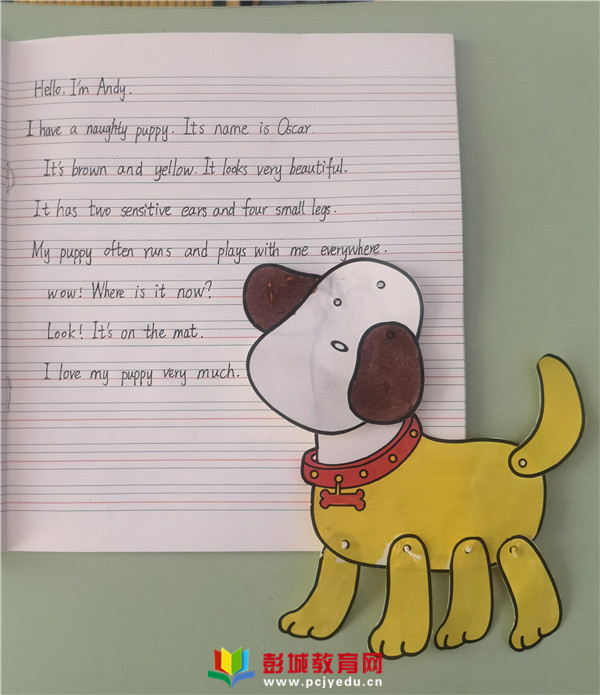 Hello. I'm Andy.
I have a naughty puppy. Its name is Oscar.
It's brown and yellow. It looks very beautiful.
It has two sensitive ears and four small legs.
My puppy often runs and plays with me everywhere.
wow! Where is it now?
Look! It's on the mat.
I love my puppy very much.
彭城教育网
www.pcjyedu.cn